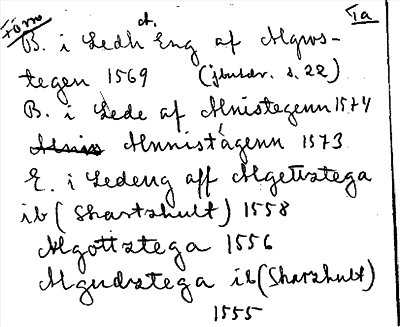 Förn Ia
B. i Ledh Eng af Algws-
tegen 1569 (jbutdr. s. 22)
B. i Lede af Alnistegenn 1574
Alnnistagenn 1573
E. i Ledeng aff Algetztega
ib (Skartzhult) 1558
Algottztega 1556
Algudztega ib (Skarzhult)
1555